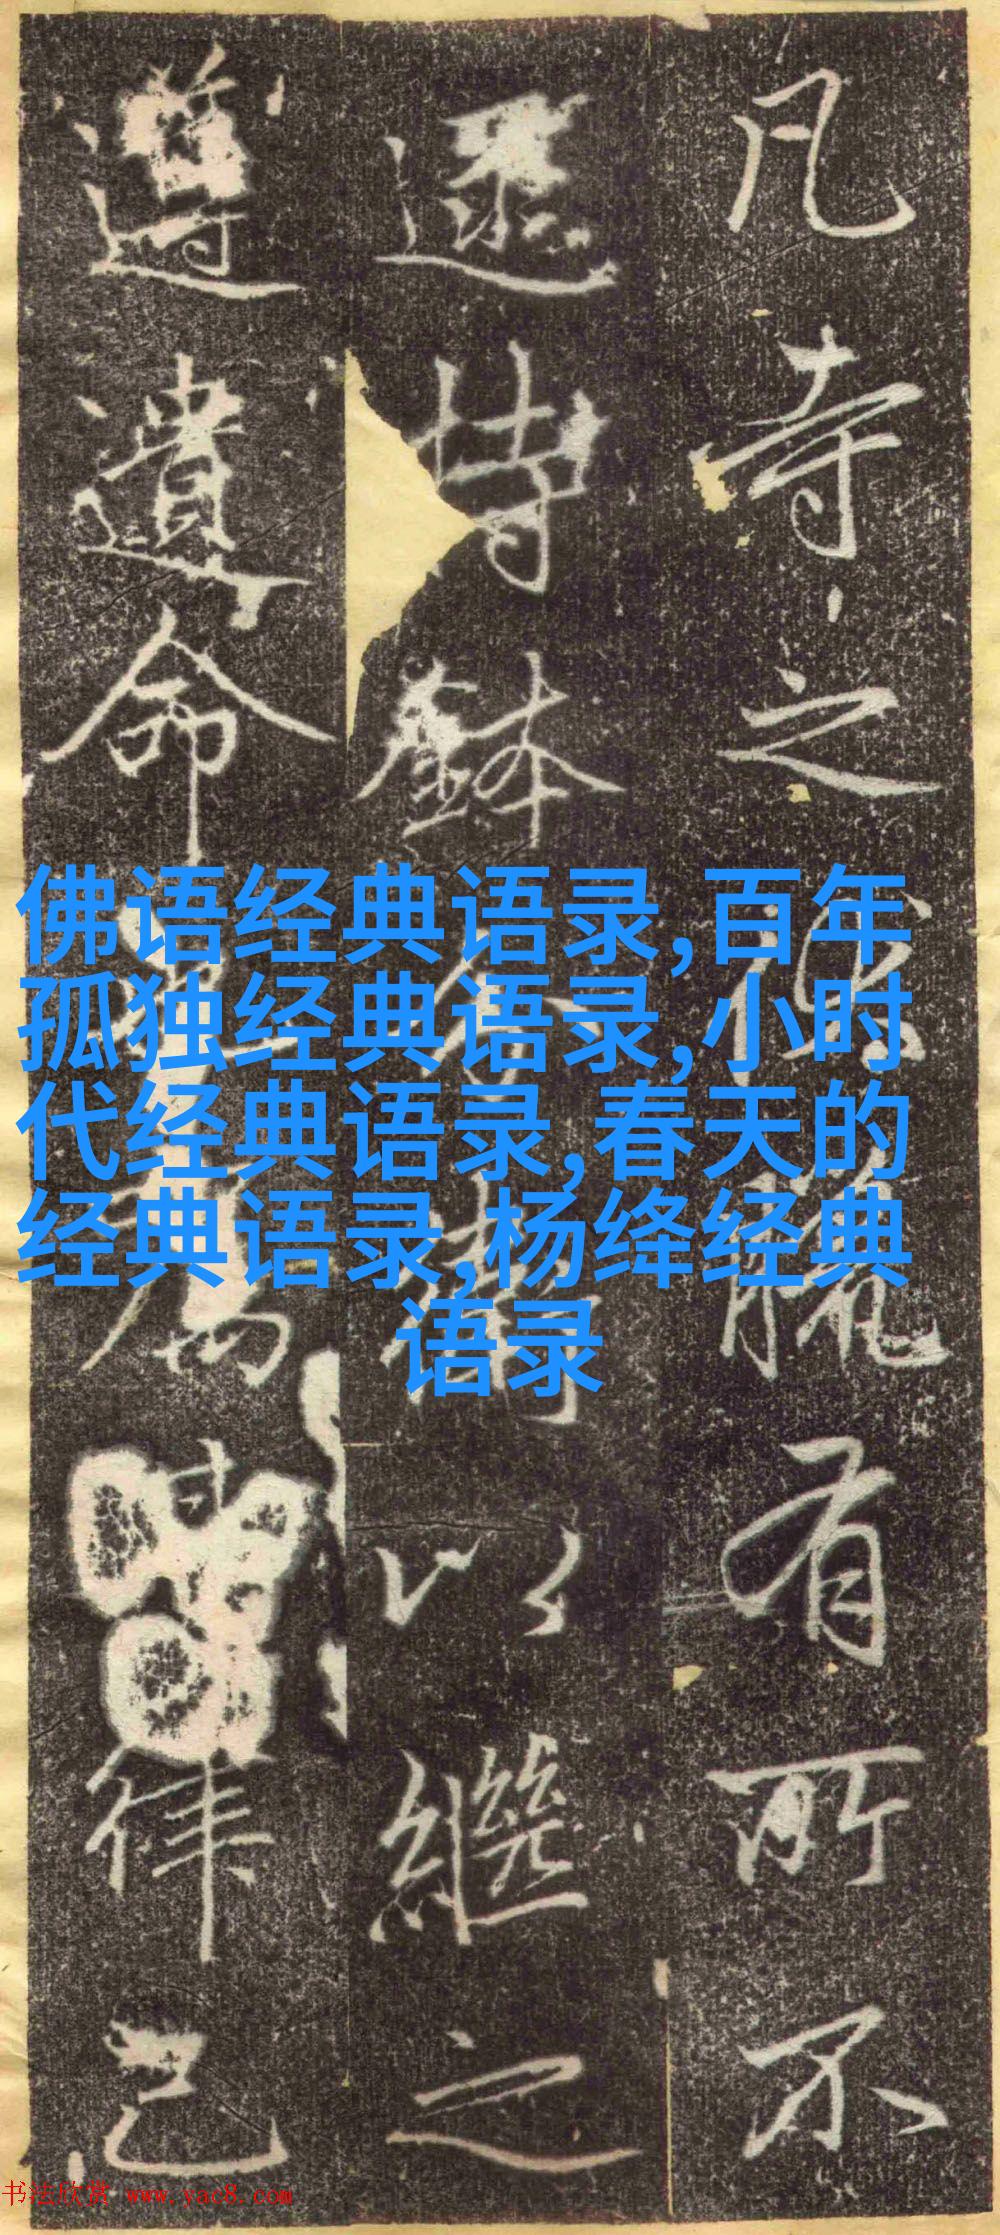 凡寺之役 有所不
遝持鉢 以繼之
遵遺命 律己
佛语经典语录,百年
孤独经典语录,小时
代经典语录,春天的
经典语录,杨绛经典
语录
书法欣赏 www.yac8.com